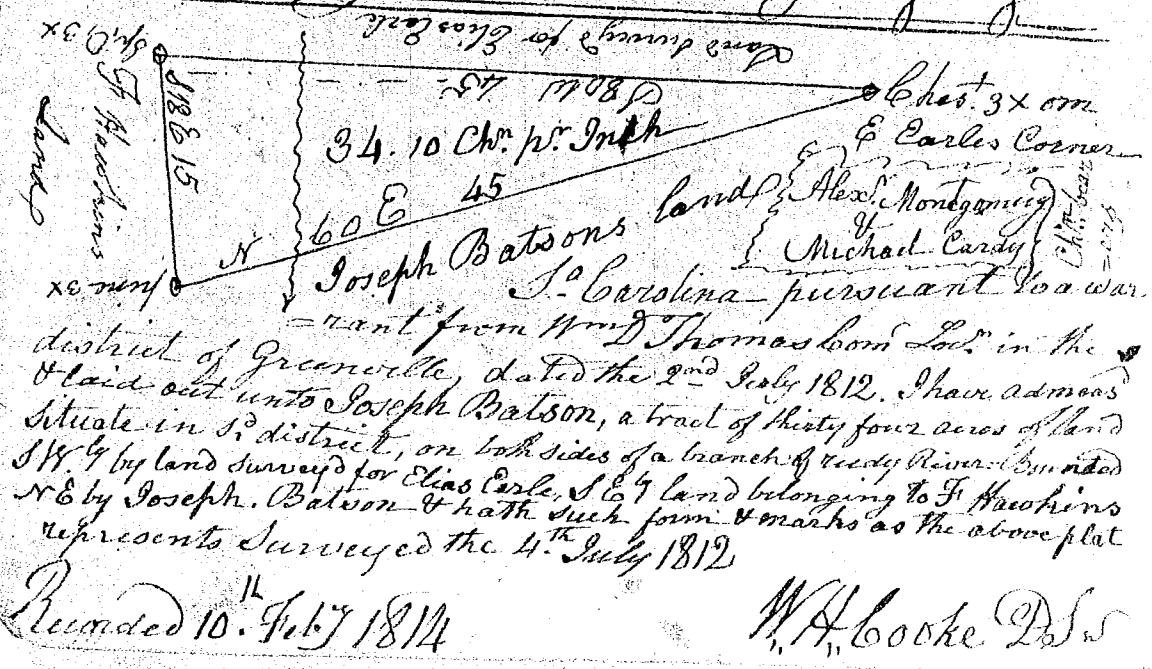 Land survey'd for Elias Earle
S 80 W 45
Sp. O 3x
Ches.t 3x om
E Earles Corner
F Hawkins
Land
S 18 E 15
34. 10 Chn. pr. Inch
N 60 E 45
Joseph Batsons land
Alexr. Montgomery
&
Michael Cardy
Chn. bear
=ers
3x
So. Carolina pursuant to a war
=rant from Wm D Thomas Comr Locn. in the
district of Greenville, dated the 2nd July 1812. I have admeas'd
& laid out unto Joseph Batson, a tract of thirty four acres of land
situate in sd. district, on both sides of a branch of reedy River Bounded
S W.ly by land survey'd for Elias Earle, S Ely land belonging to F Hawkins
N E by Joseph. Batson & hath such form & marks as the above plat
represents Surveyed the 4.th July 1812
Recorded 10.th Feby 1814
W,, H,, Cooke D S